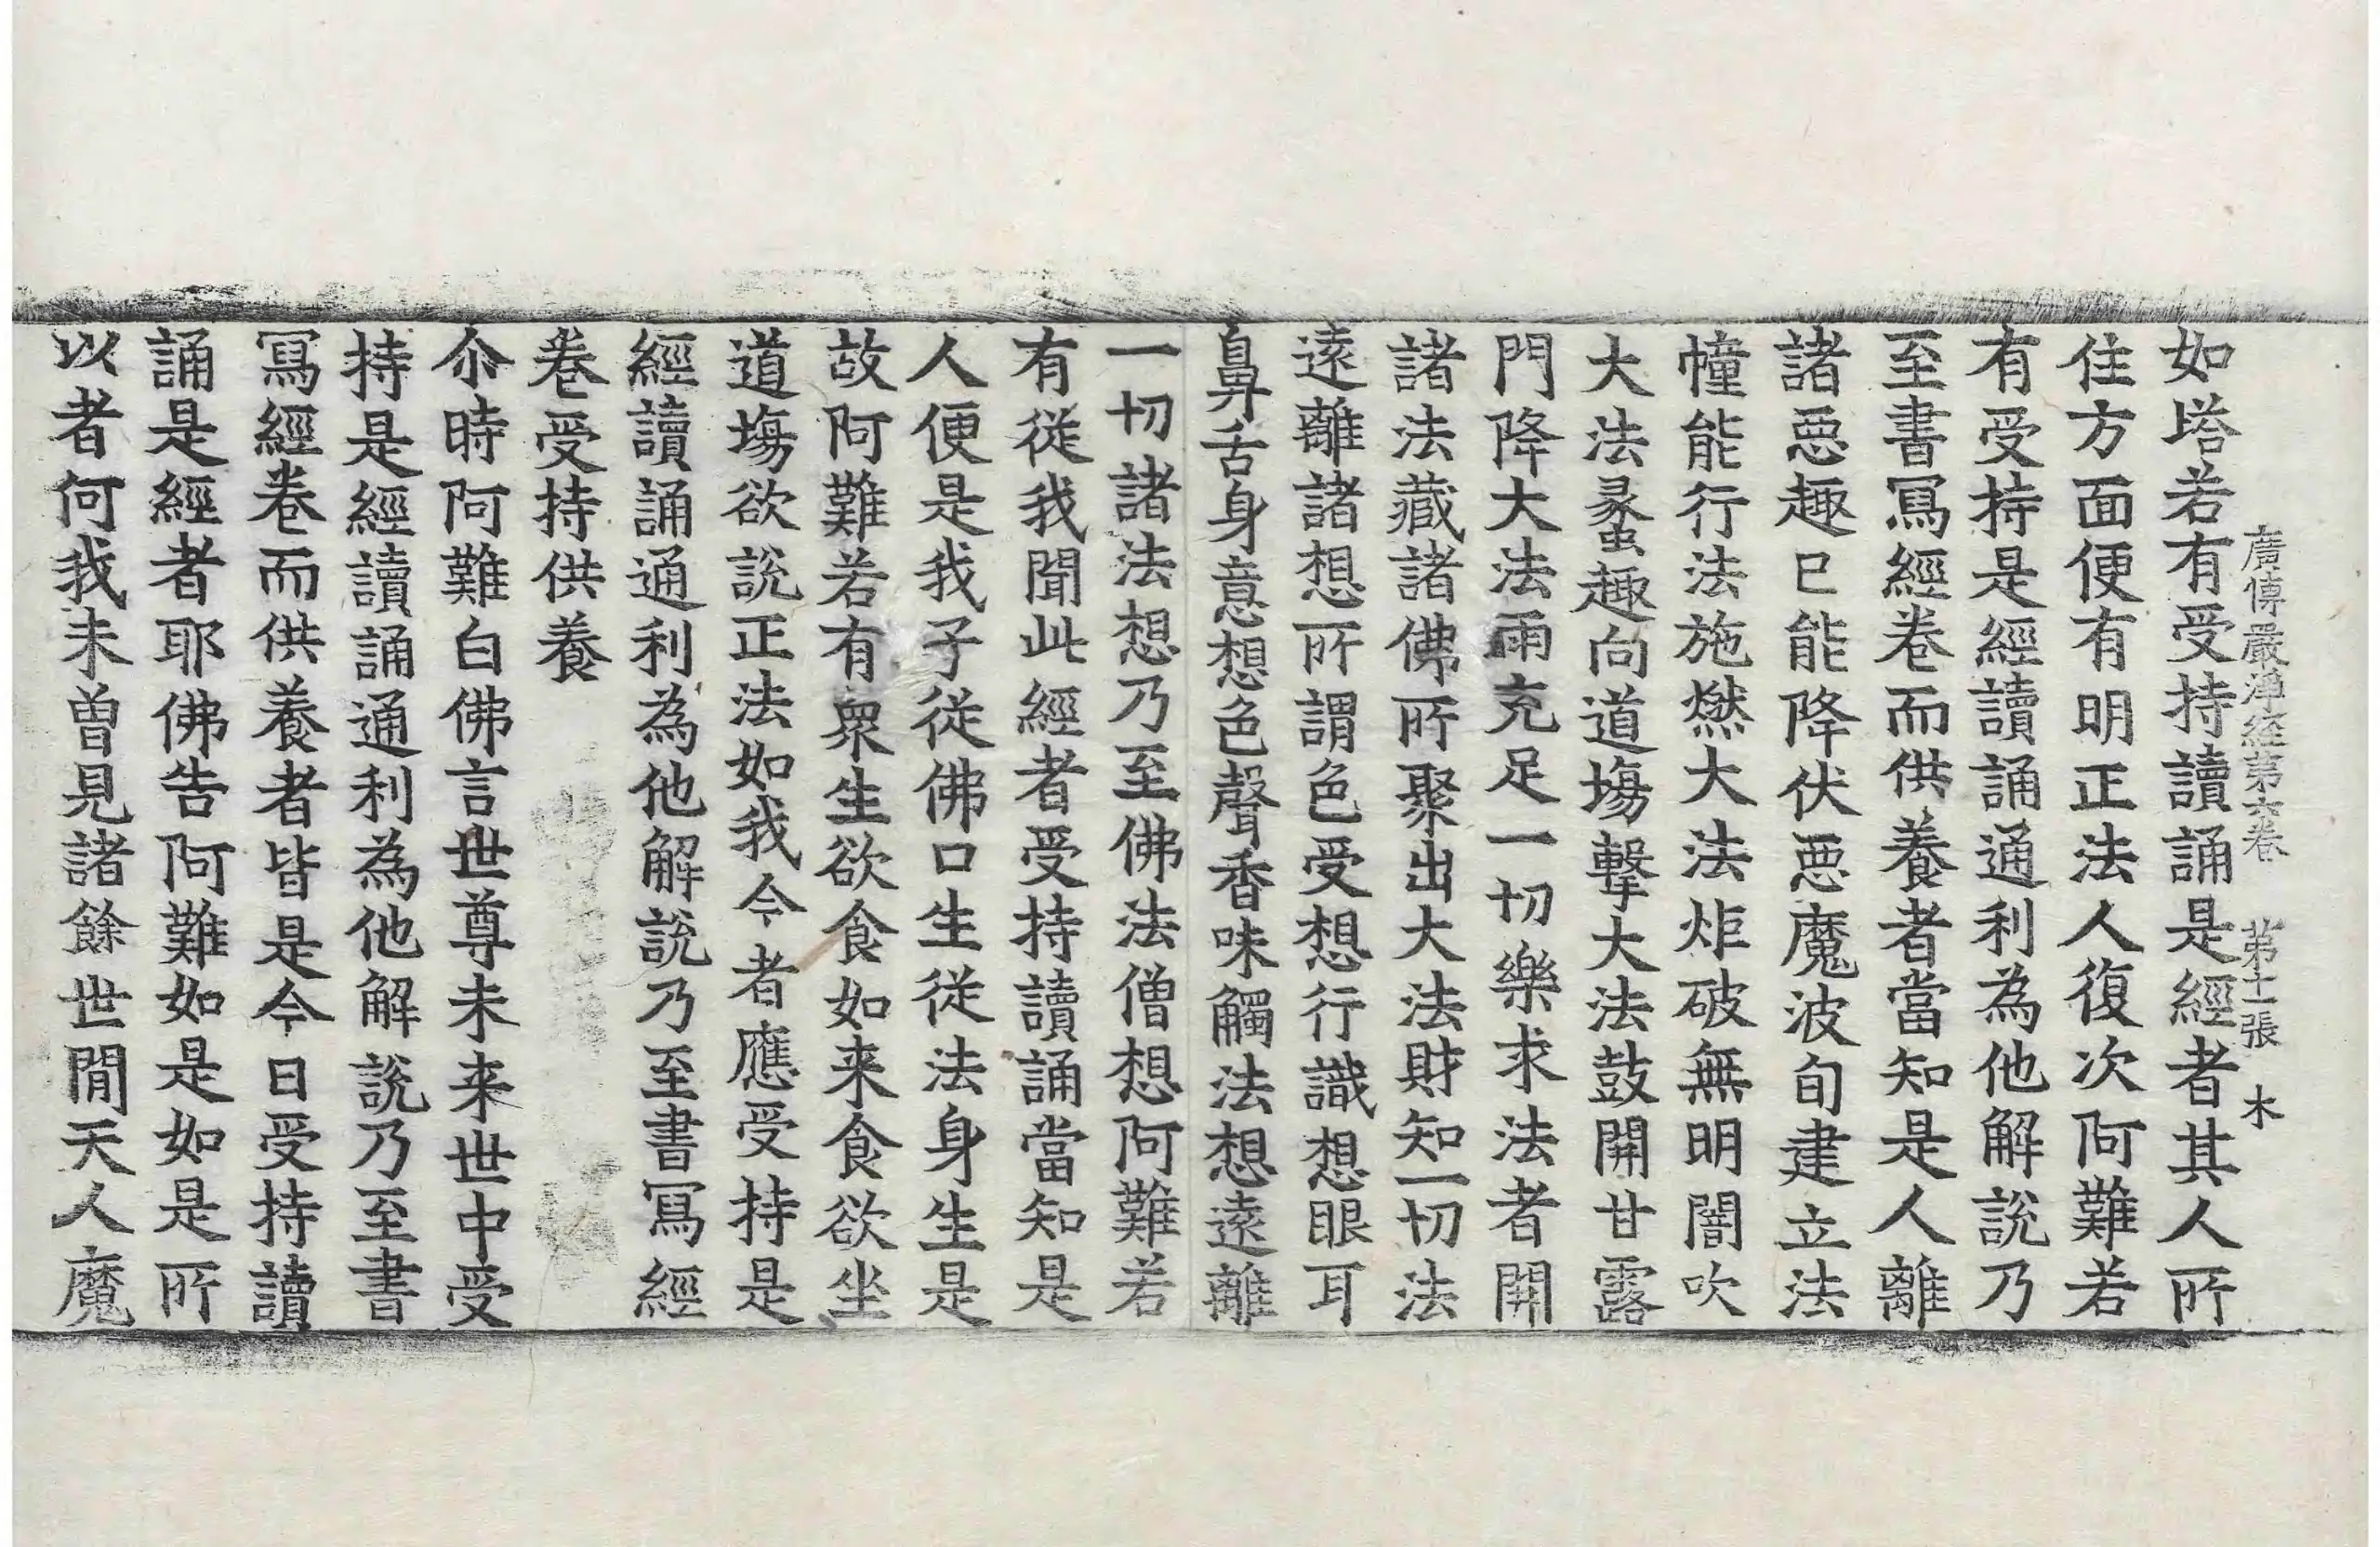 廣博嚴淨經第六卷　第十二張　木
如塔若有受持讀誦是經者其人所
住方面便有明正法人復次阿難若
有受持是經讀誦通利為他解說乃
至書寫經卷而供養者當知是人離
諸惡趣已能降伏惡魔波旬建立法
幢能行法施燃大法炬破無明闇吹
大法䗍趣向道場擊大法鼓開甘露
門降大法雨充足一切樂求法者開
諸法藏諸佛所聚出大法財知一切法
遠離諸想所謂色受想行識想眼耳
鼻舌身意想色聲香味觸法想遠離
一切諸法想乃至佛法僧想阿難若
有從我聞此經者受持讀誦當知是
人便是我子從佛口生從法身生是
故阿難若有眾生欲食如来食欲坐
道場欲說正法如我今者應受持是
經讀誦通利為他解說乃至書寫經
卷受持供養
尒時阿難白佛言世尊未来世中受
持是經讀誦通利為他解說乃至書
寫經卷而供養者皆是今日受持讀
誦是經者耶佛告阿難如是如是所
以者何我未曾見諸餘世閒天人魔